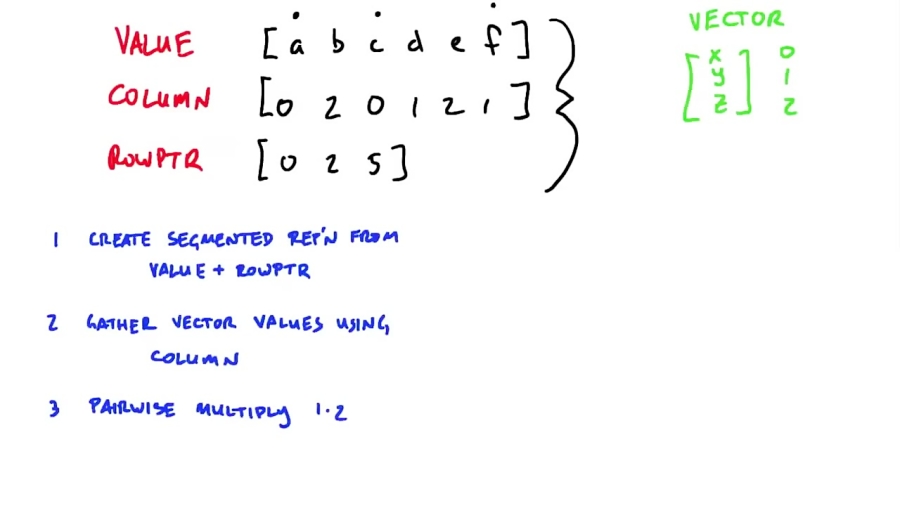 VALUE [a b c d e f]
COLUMN [0 2 0 1 2 1]
ROWPTR [0 2 5]
VECTOR
[x 0
y 1
z] 2
1 CREATE SEGMENTED REP'N FROM
VALUE + ROWPTR
2 GATHER VECTOR VALUES USING
COLUMN
3 PAIRWISE MULTIPLY 1·2